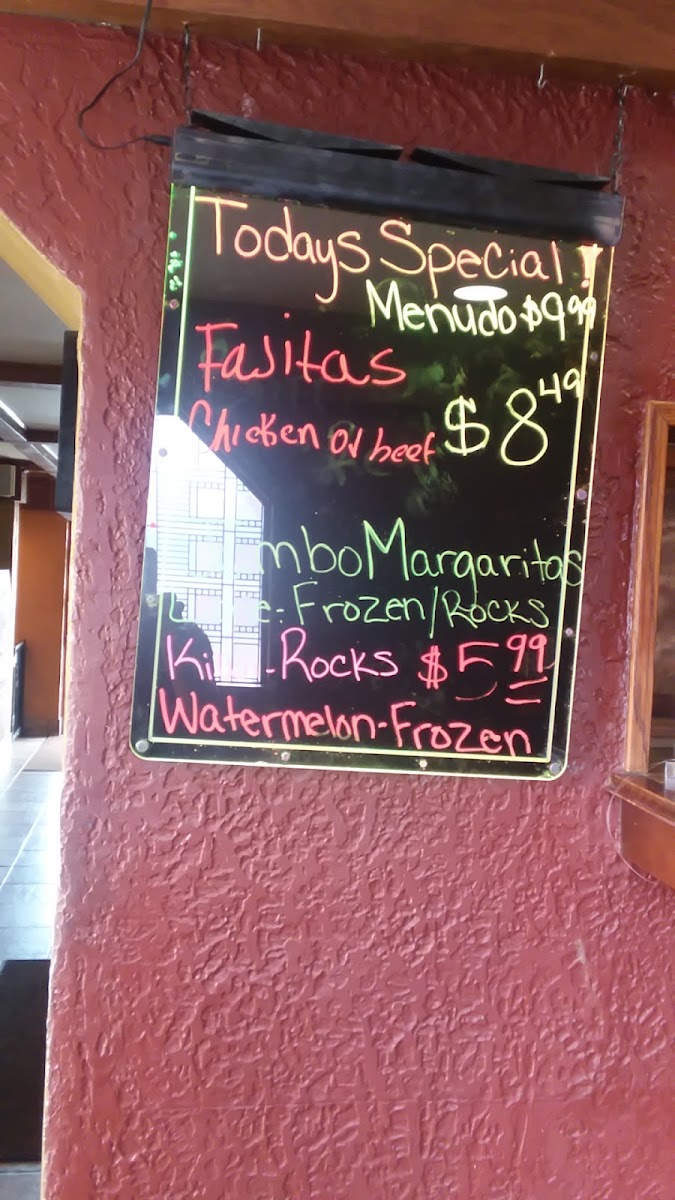 Todays Special!
Menudo $9.99
Fajitas
Chicken or beef $8.49
Margaritas
Frozen/Rocks
Rocks $5.99
Watermelon-Frozen